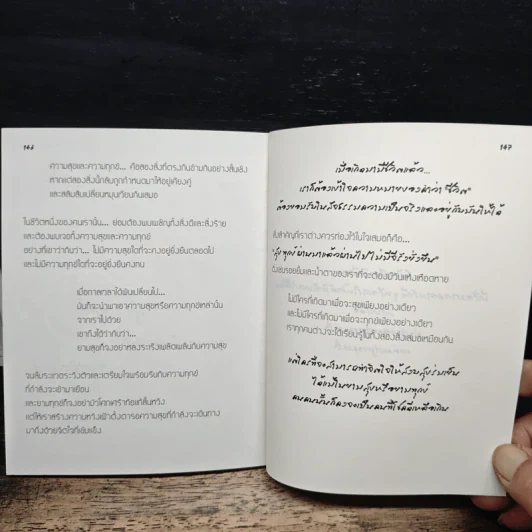 146
ความสุขและความทุกข์... คือสองสิ่งที่ตรงกันข้ามกันอย่างสิ้นเชิง
หากแต่สองสิ่งนี้กลับถูกกำหนดมาให้อยู่เคียงคู่
และสลับสับเปลี่ยนหมุนเวียนกันเสมอ
ในชีวิตหนึ่งของคนเรานั้น... ย่อมต้องพบเผชิญทั้งสิ่งดีและสิ่งร้าย
และต้องพบเจอทั้งความสุขและความทุกข์
อย่างที่เขาว่ากันว่า... ไม่มีความสุขใดที่จะคงอยู่ยั่งยืนตลอดไป
และไม่มีความทุกข์ใดที่จะอยู่ยั่งยืนคงทน
เมื่อกาลเวลาได้ผันเปลี่ยนไป...
มันก็จะนำพาเอาความสุขหรือความทุกข์เหล่านั้น
จากเราไปด้วย
เขาถึงได้ว่ากันว่า...
ยามสุขก็จงอย่าหลงระเริงเพลิดเพลินกับความสุข
จนลืมระแวดระวังตัวและเตรียมใจพร้อมรับกับความทุกข์
ที่กำลังจะเข้ามาเยือน
และยามทุกข์ก็จงอย่ามัวโศกเศร้าท้อแท้สิ้นหวัง
แต่ให้เราสร้างความหวังเฝ้าตั้งตารอความสุขที่กำลังจะเดินทาง
มาถึงด้วยจิตใจที่เข้มแข็ง
147
เมื่อเกิดมามีชีวิตแล้ว...
เราก็ต้องเข้าใจความหมายของคำว่า "ชีวิต"
ต้องยอมรับในสัจธรรมความเป็นจริงและอยู่กับมันให้ได้
สิ่งสำคัญที่เราต่างควรท่องไว้ในใจเสมอก็คือ...
"สุข ทุกข์ ผ่านมาแล้วผ่านไป ไม่มีสิ่งใดยั่งยืน"
ดั่งเช่นรอยยิ้มและน้ำตาของเราที่จะต้องมีวันแห้งเหือดหาย
ไม่มีใครที่เกิดมาเพื่อจะสุขเพียงอย่างเดียว
และไม่มีใครที่เกิดมาเพื่อจะทุกข์เพียงอย่างเดียว
เราทุกคนต่างจะได้เรียนรู้ในทั้งสองสิ่งเสมอเหมือนกัน
แต่ใครที่จะสามารถทำจิตใจให้สงบสุขร่มเย็น
ได้แม้ในยามสุขหรือยามทุกข์
คนคนนั้นก็คงจะเป็นคนที่โชคดีเหลือเกิน